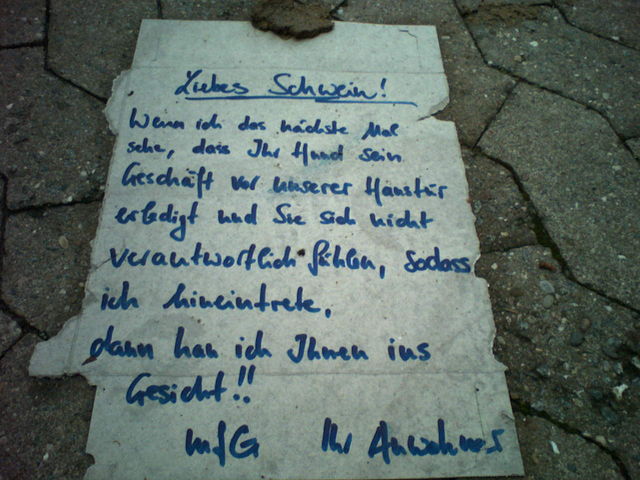 Liebes Schwein!
Wenn ich das nächste Mal
sehe, dass Ihr Hund sein
Geschäft vor unserer Haustür
erledigt und Sie sich nicht
verantwortlich fühlen, sodass
ich hineintrete,
dann hau ich Ihnen ins
Gesicht!!
MfG Ihr Anwohner